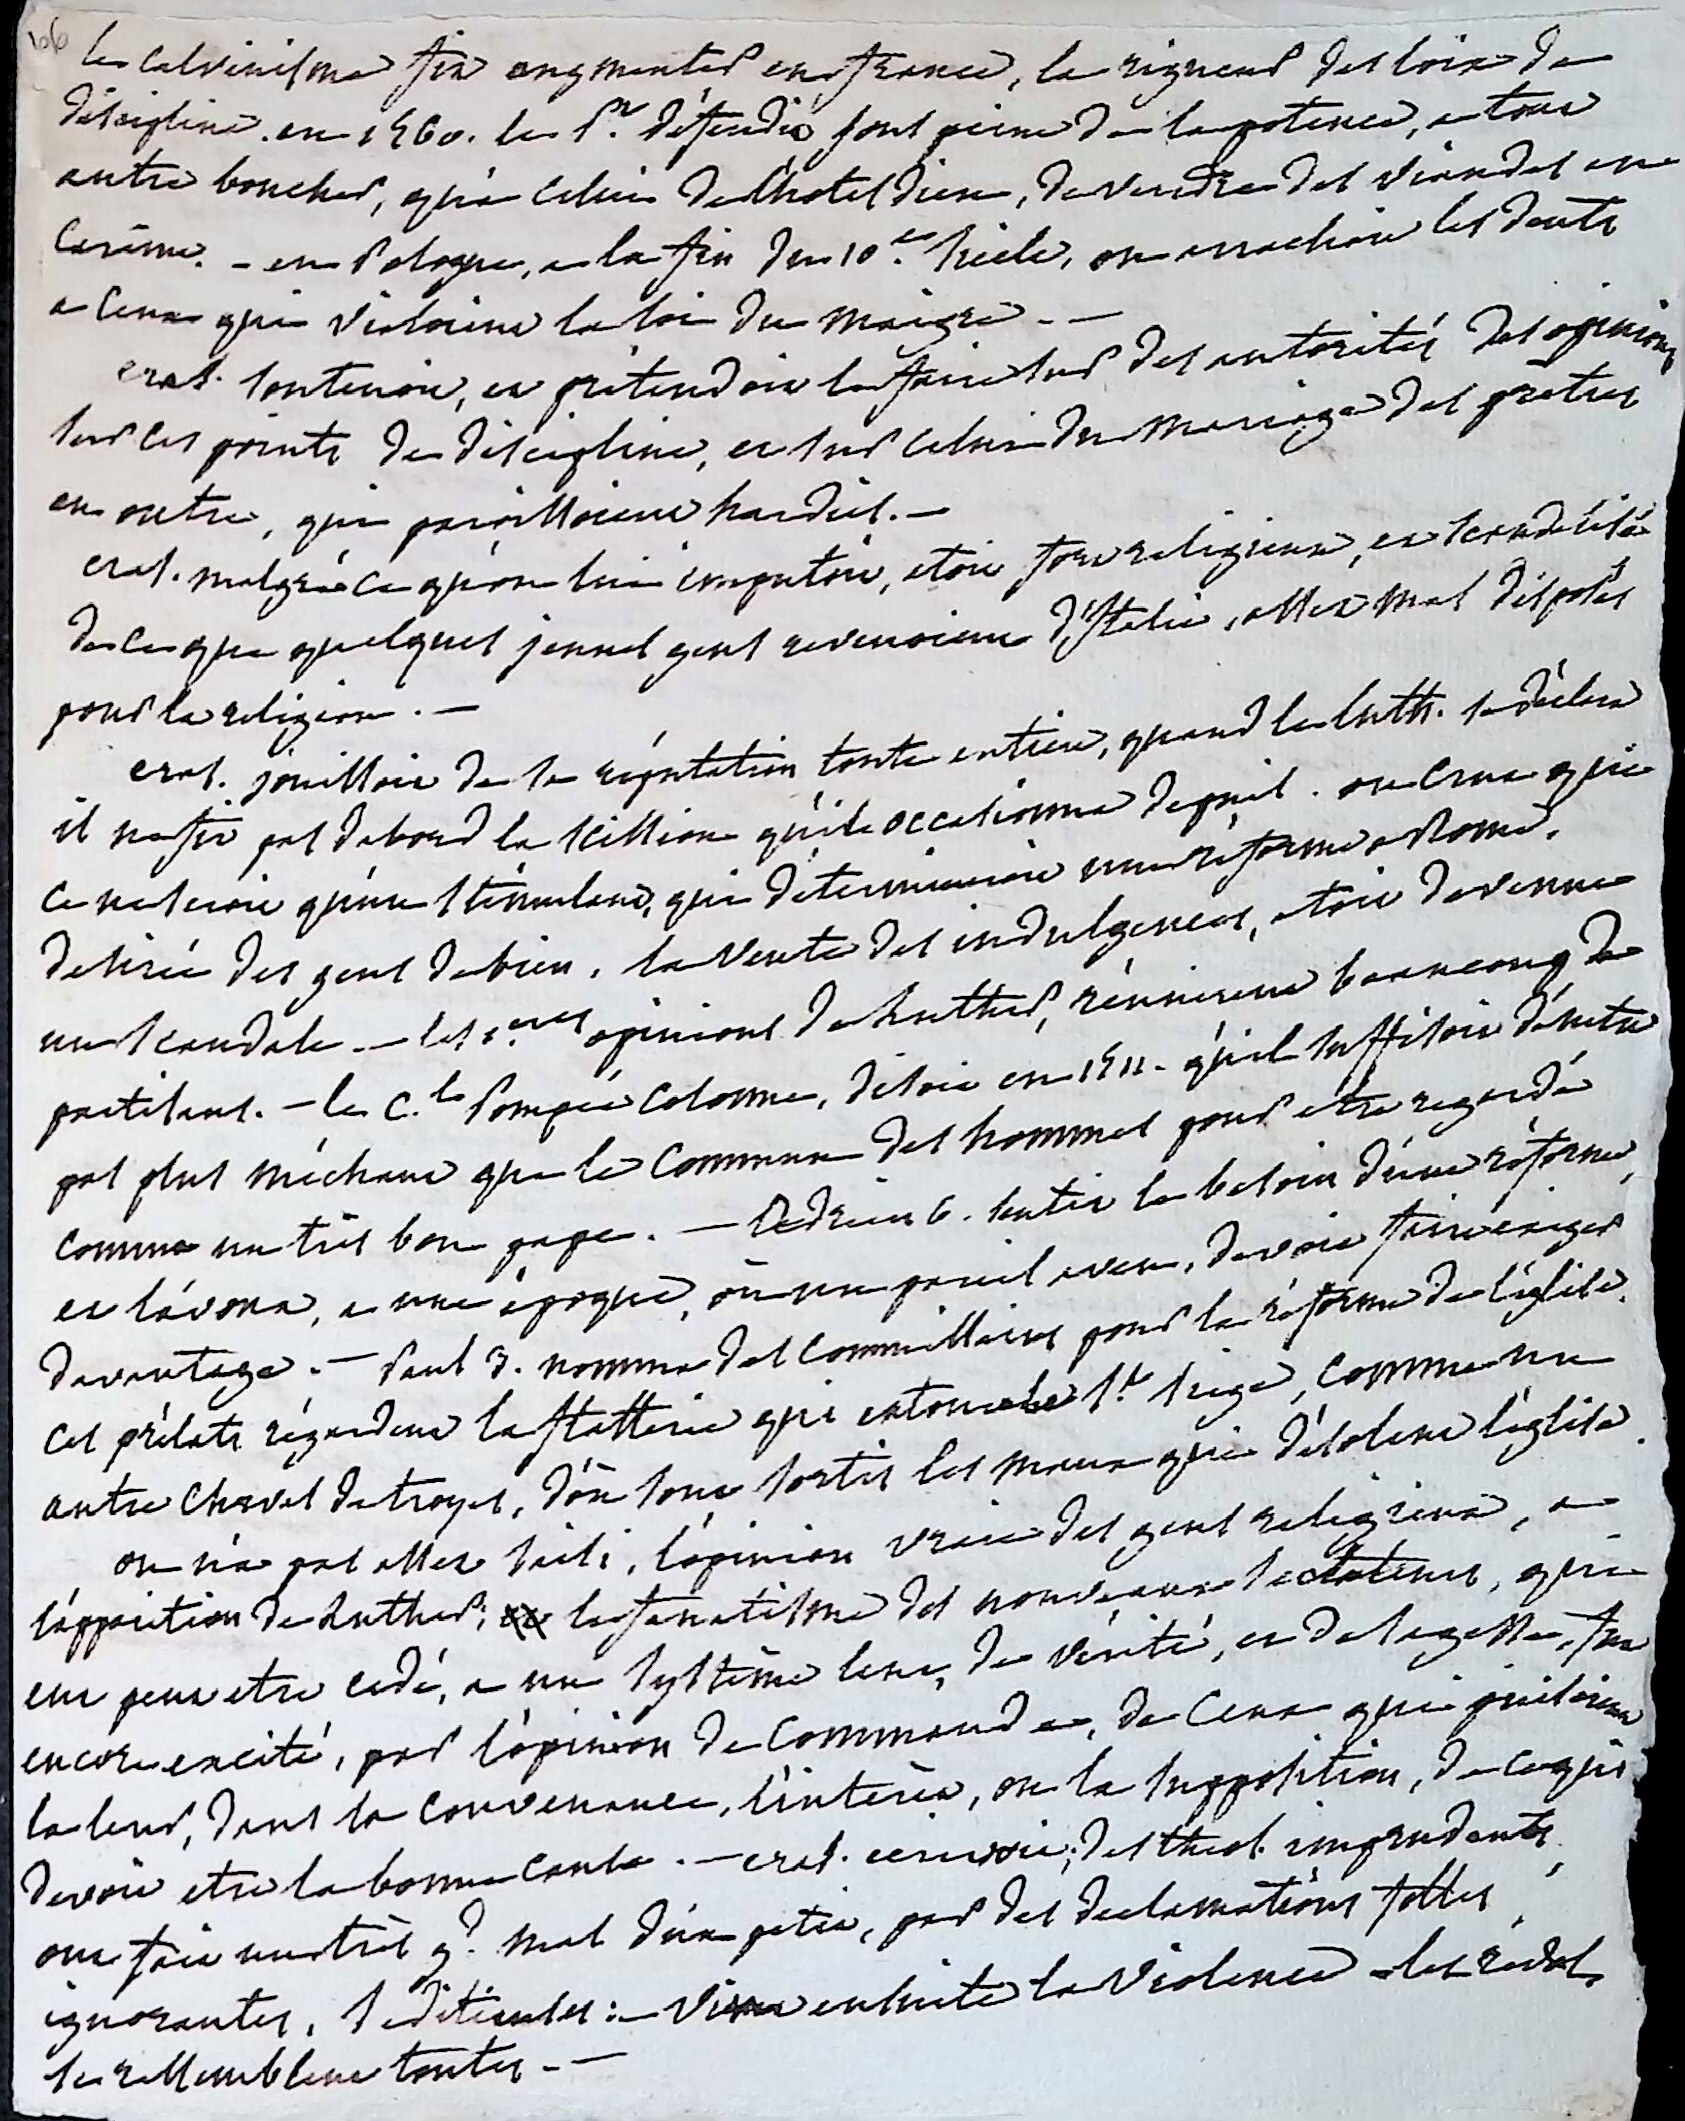 le calvinisme fit augmenter en france, la rigueur des loix de
discipline. en 1560. le Pr. défendit sous peine de la potence, a tout
autre boucher, qu'a celui de l'hotel dieu, de vendre des viandes en
carême. - en Pologne, a la fin du 10.e siecle, on arrachoit les dents
a ceux qui violoient la loi du maigre. -
eras. soutenoit, et prétendoit le faire sur des autorités des opinions
sur ces points de discipline, et sur celui du mariage des prêtres
en outre, qui paroissoient hardies. -
eras. malgré ce qu'on lui imputoit, etoit fort religieux, et scandalisé
de ce que quelques jeunes gens revenoient d'Italie, assez mal disposés
pour la religion. -
eras. jouissoit de sa réputation toute entiere, quand le luth. se déclara
il ne fit pas dabord la scission qu'il occasionna depuis. on crut que
ce ne seroit qu'un stimulant, qui determineroit une réforme a Rome,
desirée des gens de bien. la vente des indulgences, etoit devenue
un scandale. - les 1.eres opinions de Luther, réunirent beaucoup de
partisans. - le C.l Pompée Colonne, disoit en 1511. qu'il suffisoit d'être
pas plus méchant que le commun des hommes pour etre regardé
comme un très bon pape. - Adrien 6. sentit le besoin d'une réforme,
et l'avoua, a une époque, où un pareil aveu, devoit faire exiger
davantage. - Paul 3. nomma des commissaires pour la réforme de l'église.
ces prélats regardent la flatterie qui entoure le St. siege, comme un
autre cheval de troyes, d'où sont sortis les maux qui désolent l'église.
on n'a pas assez saisi, l'opinion vraie des gens religieux, a
l'apparition de Luther; le fanatisme des nouveaux sectateurs, qui
eut peut etre cedé, a un systême lent, de vérité, et de sagesse, fut
encore excité, par l'opinion de commande, de ceux qui puisoient
la leur, dans la convenance, l'intérêt, ou la supposition, de ce qui
devoit etre la bonne cause. - eras. ecrivoit; des theol. imprudents,
ont fait un très gd. mal d'un petit, par des declamations folles,
ignorantes, seditieuses: - vint ensuite la violence -
se rassemblent toutes. -